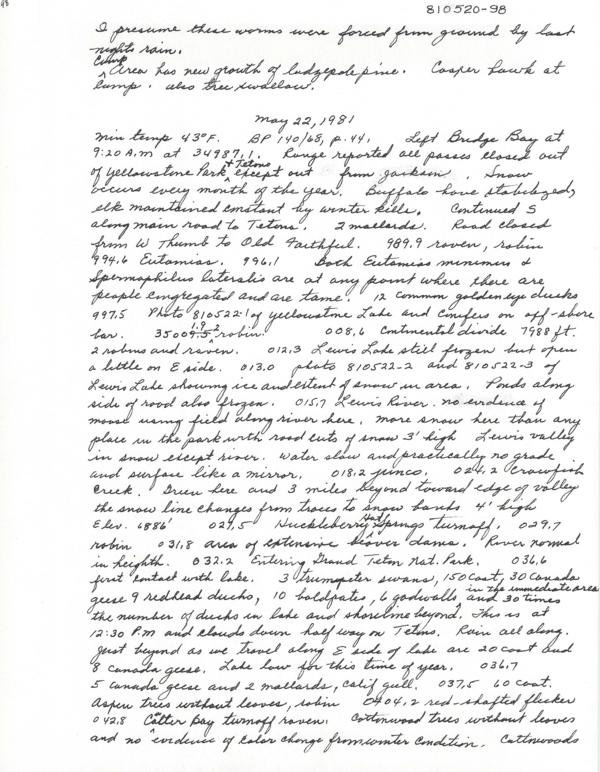 98
810520-98
I presume these worms were forced from ground by last
nights rain.
Camp Area has new growth of lodgepole pine. Cooper hawk at
camp. also tree swallow.
May 22, 1981
Min temp 43°F. BP 140/68, p. 44. Left Bridge Bay at
9:20 A.M at 34987.1. Range reported all passes closed out
of Yellowstone Park + Tetons except out from Jackson. Snow
occurs every month of the year. Buffalo have stabilized,
elk maintained constant by winter kills. Continued S
along main road to Tetons. 2 mallards. Road closed
from W Thumb to Old Faithful. 989.9 raven, robin
994.6 Eutamias. 996.1 Both Eutamias minimus &
Spermophilus lateralis are at any point where there are
people congregated and are tame. 12 common goldeneye ducks
997.5 Photo 810522-1 of Yellowstone Lake and Conifers on off-shore
bar. 35001.9 2 robin. 008.6 Continental divide 7988 ft.
2 robins and raven. 012.3 Lewis Lake still frozen but open
a little on E side. 013.0 photo 810522-2 and 810522-3 of
Lewis Lake showing ice and extent of snow in area. Ponds along
side of road also frozen. 015.7 Lewis River. no evidence of
moose using field along river here. more snow here than any
place in the park with road cuts of snow 3' high Lewis valley
in snow except river. Water slow and practically no grade
and surface like a mirror. 018.2 junco. 024.2 Crawfish
Creek. Green here and 3 miles beyond toward edge of valley
the snow line changes from traces to snow banks 4' high
Elev. 6886' 027.5 Huckleberry Hot Springs turnoff. 029.7
robin 031.8 area of extensive beaver dams. River normal
in heighth. 032.2 Entering Grand Teton Nat. Park. 036.6
first contact with lake. 3 trumpeter swans, 150 coot, 30 Canada
geese 9 redhead ducks, 10 baldpates, 6 gadwalls and 30 times
the number of ducks in lake and shoreline beyond in the immediate area. This is at
12:30 P.M and clouds down half way on Tetons. Rain all along.
Just beyond as we travel along E side of lake are 20 coot and
8 Canada geese. Lake low for this time of year. 036.7
5 Canada geese and 2 mallards, Calif gull. 037.5 60 coot.
Aspen trees without leaves, robin 0404.2 red-shafted flicker
042.8 Colter Bay turnoff raven. Cottonwood trees without leaves
and no evidence of color change from winter condition. Cottonwoods